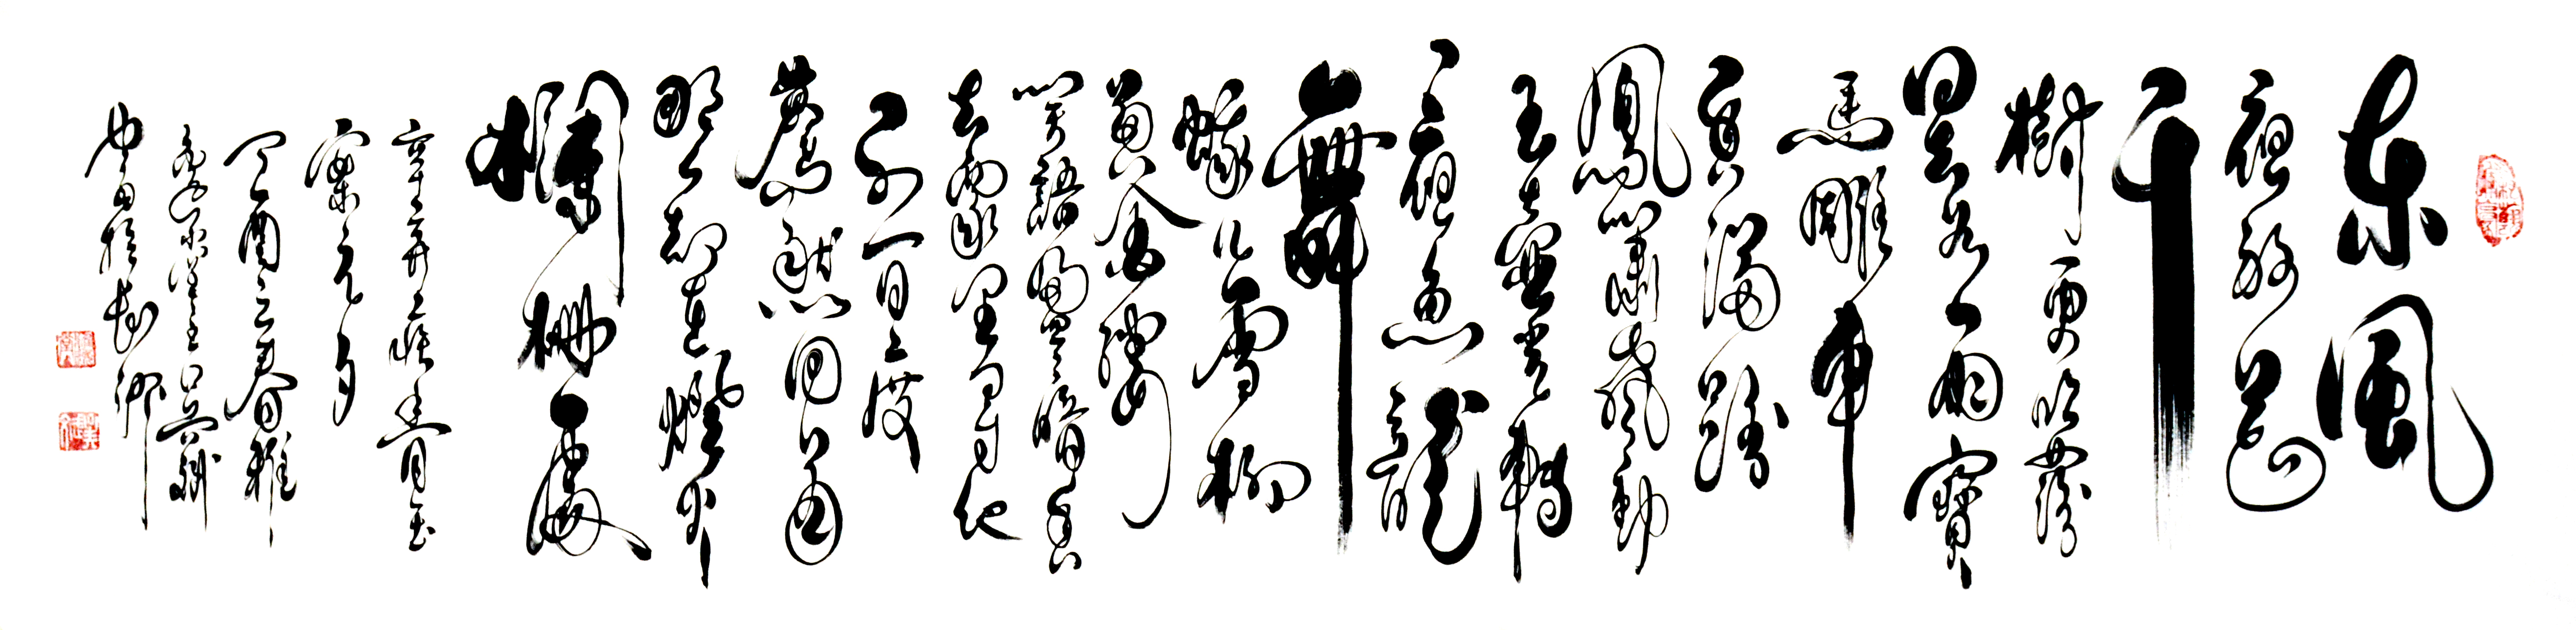 東風
夜放花
千
樹更吹落
星如雨寶
馬雕車
香滿路
鳳簫聲動
玉壺光轉
一夜魚龍
舞
蛾兒雪柳
黃金縷
笑語盈盈暗香
去眾里尋他
千百度
驀然回首
那人卻在燈火
欄柵處
辛棄疾青玉
案元夕
丁酉之春雅
堂主吳斌